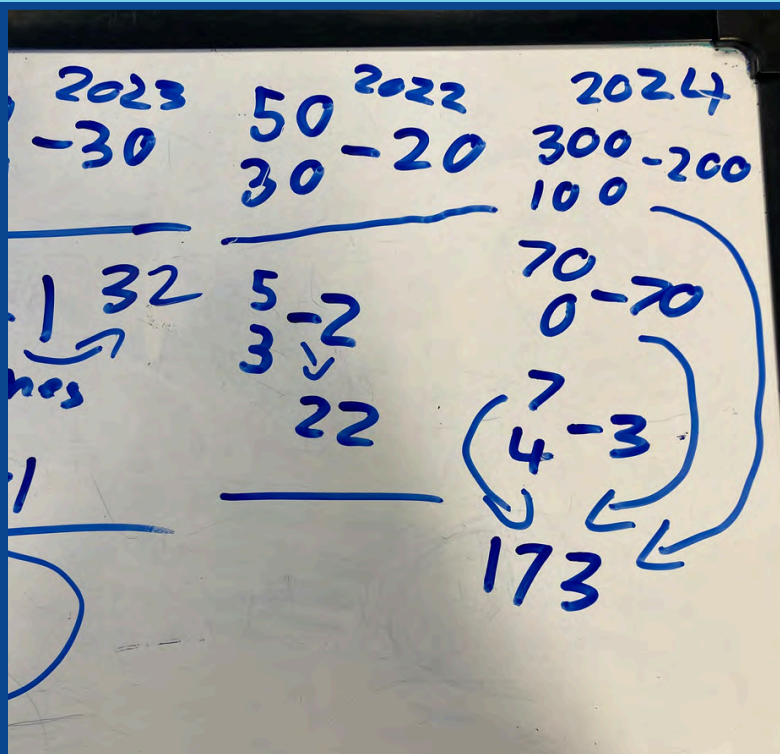 2023
-30
1 32
-1
2022
50
30 -20
5
3 -2
22
2024
300
100 -200
70
0 -70
7
4 -3
173